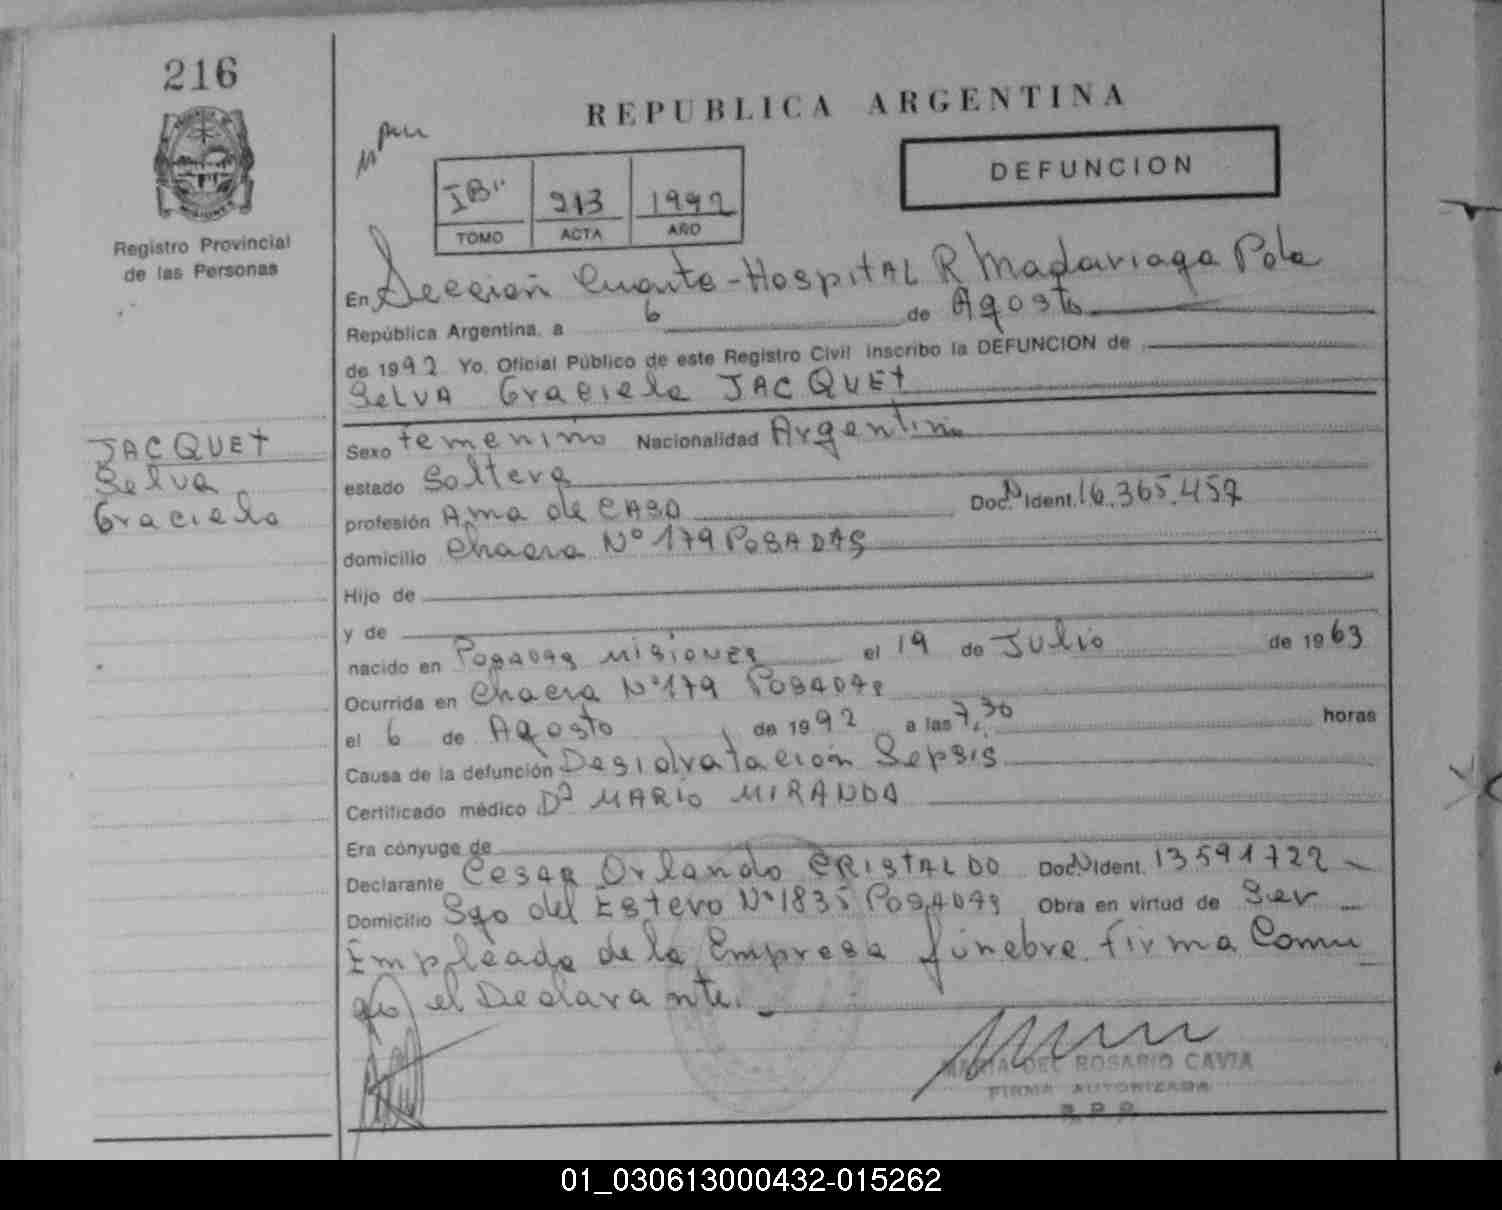 216
REPUBLICA ARGENTINA
DEFUNCION
IB" 213 1992
TOMO ACTA AÑO
Registro Provincial
de las Personas
En Sección Cuarta - Hospital R Madariaga Pda
República Argentina, a 6 de Agosto
de 1992 Yo, Oficial Público de este Registro Civil inscribo la DEFUNCION de
SELVA Graciela JACQUET
JACQUET
Selva
Graciela
Sexo femenino Nacionalidad Argentina
estado Soltera
profesión Ama de CASA Doc. N Ident. 16.365.457
domicilio Chacra Nº 179 POSADAS
Hijo de
y de
nacido en POSADAS MISIONES el 19 de Julio de 1963
Ocurrida en Chacra Nº 179 POSADAS
el 6 de Agosto de 1992 a las 7,30 horas
Causa de la defunción Desidratación Sepsis
Certificado médico Dº MARIO MIRANDA
Era cónyuge de
Declarante Cesar Orlando CRISTALDO Doc. N Ident. 13591722
Domicilio Sgo del Estero Nº 1835 POSADAS Obra en virtud de Ser
Empleado de la Empresa fúnebre. firma Comi
go el Declarante.
MARIA DEL ROSARIO CAVIA
FIRMA AUTORIZADA
R. P. P.
01_030613000432-015262